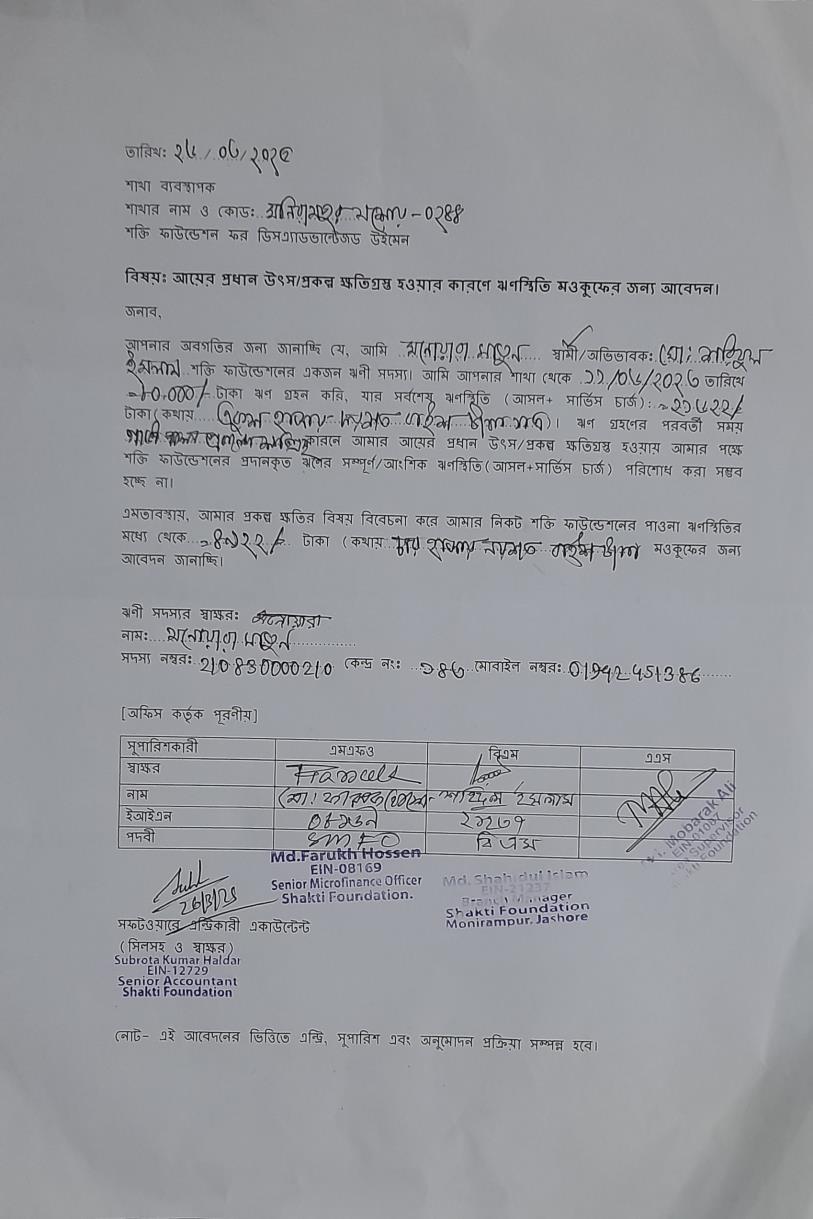 তারিখ:
শাখা ব্যবস্থাপক
শাখার নাম ও কোড: -০২৪৪
শক্তি ফাউন্ডেশন ফর ডিসএ্যাডভান্টেজড উইমেন
বিষয়: আয়ের প্রধান উৎস/প্রকল্প ক্ষতিগ্রস্ত হওয়ার কারণে ঋণস্থিতি মওকুফের জন্য আবেদন।
জনাব,
আপনার অবগতির জন্য জানাচ্ছি যে, আমি মনোয়ারা স্বামী/অভিভাবক: মো:
শক্তি ফাউন্ডেশনের একজন ঋনী সদস্য। আমি আপনার শাখা থেকে তারিখে
টাকা ঋণ গ্রহন করি, যার সর্বশেষ ঋণস্থিতি (আসল+ সার্ভিস চার্জ):
টাকা(কথায় )। ঋণ গ্রহণের পরবর্তী সময়
কারনে আমার আয়ের প্রধান উৎস/প্রকল্প ক্ষতিগ্রস্ত হওয়ায় আমার পক্ষে
শক্তি ফাউন্ডেশনের প্রদানকৃত ঋণের সম্পূর্ণ/আংশিক ঋণস্থিতি(আসল+সার্ভিস চার্জ) পরিশোধ করা সম্ভব
হচ্ছে না।
এমতাবস্থায়, আমার প্রকল্প ক্ষতির বিষয় বিবেচনা করে আমার নিকট শক্তি ফাউন্ডেশনের পাওনা ঋণস্থিতির
মধ্যে থেকে টাকা (কথায় চার হাজার নয়শত বাইশ টাকা মওকুফের জন্য
আবেদন জানাচ্ছি।
ঋনী সদস্যর স্বাক্ষর: মনোয়ারা
নাম: মনোয়ারা
সদস্য নম্বর: 21083000021০ কেন্দ্র নং: মোবাইল নম্বর: 01942451386
[অফিস কর্তৃক পূরণীয়]
সুপারিশকারী এমএফও বিএম এএস
স্বাক্ষর
নাম মো: শহিদুল ইসলাম
ইআইএন ০৮১৬৯ ২১২৩৭
পদবী SMFO বি এম
Md.Farukh Hossen
EIN-08169
Senior Microfinance Officer
Shakti Foundation.
Md. Shahidul Islam
EIN-21237
Branch Manager
Shakti Foundation
Monirampur, Jashore
Mobarak Ali
EIN-01067
Supervisor
Shakti Foundation
সফটওয়ারে এন্ট্রিকারী একাউন্টেন্ট
(সিলসহ ও স্বাক্ষর)
Subrota Kumar Haldar
EIN-12729
Senior Accountant
Shakti Foundation
নোট- এই আবেদনের ভিত্তিতে এন্ট্রি, সুপারিশ এবং অনুমোদন প্রক্রিয়া সম্পন্ন হবে।